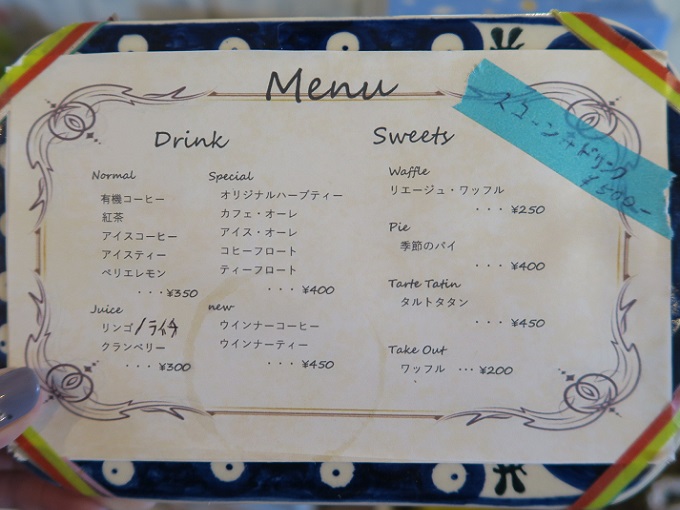 Menu
スコーン+ドリンク
¥500-
Drink
Normal
有機コーヒー
紅茶
アイスコーヒー
アイスティー
ペリエレモン
・・・¥350
Juice
リンゴ/ライチ
クランベリー
・・・¥300
Special
オリジナルハーブティー
カフェ・オーレ
アイス・オーレ
コヒーフロート
ティーフロート
・・・¥400
new
ウインナーコーヒー
ウインナーティー
・・・¥450
Sweets
Waffle
リエージュ・ワッフル
・・・¥250
Pie
季節のパイ
・・・¥400
Tarte Tatin
タルトタタン
・・・¥450
Take Out
ワッフル ・・・¥200